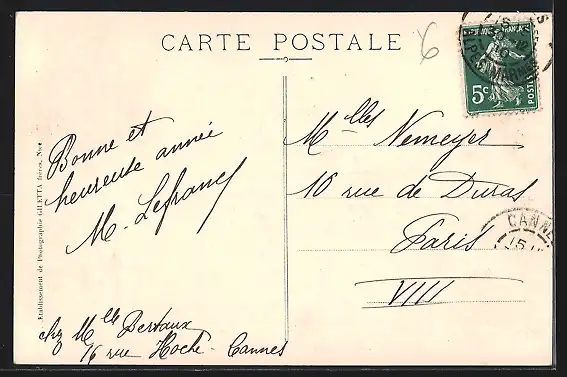 CARTE POSTALE
6
Bonne et
heureuse année
M. Lefranc
chz Mlle Bertaux
16 rue Hoche - Cannes
Mlles Nemeyer
10 rue de Duras
Paris
VIII
5c
POSTES
CANNE
15
Etablissement de Photographie GILETTA frères, Nice